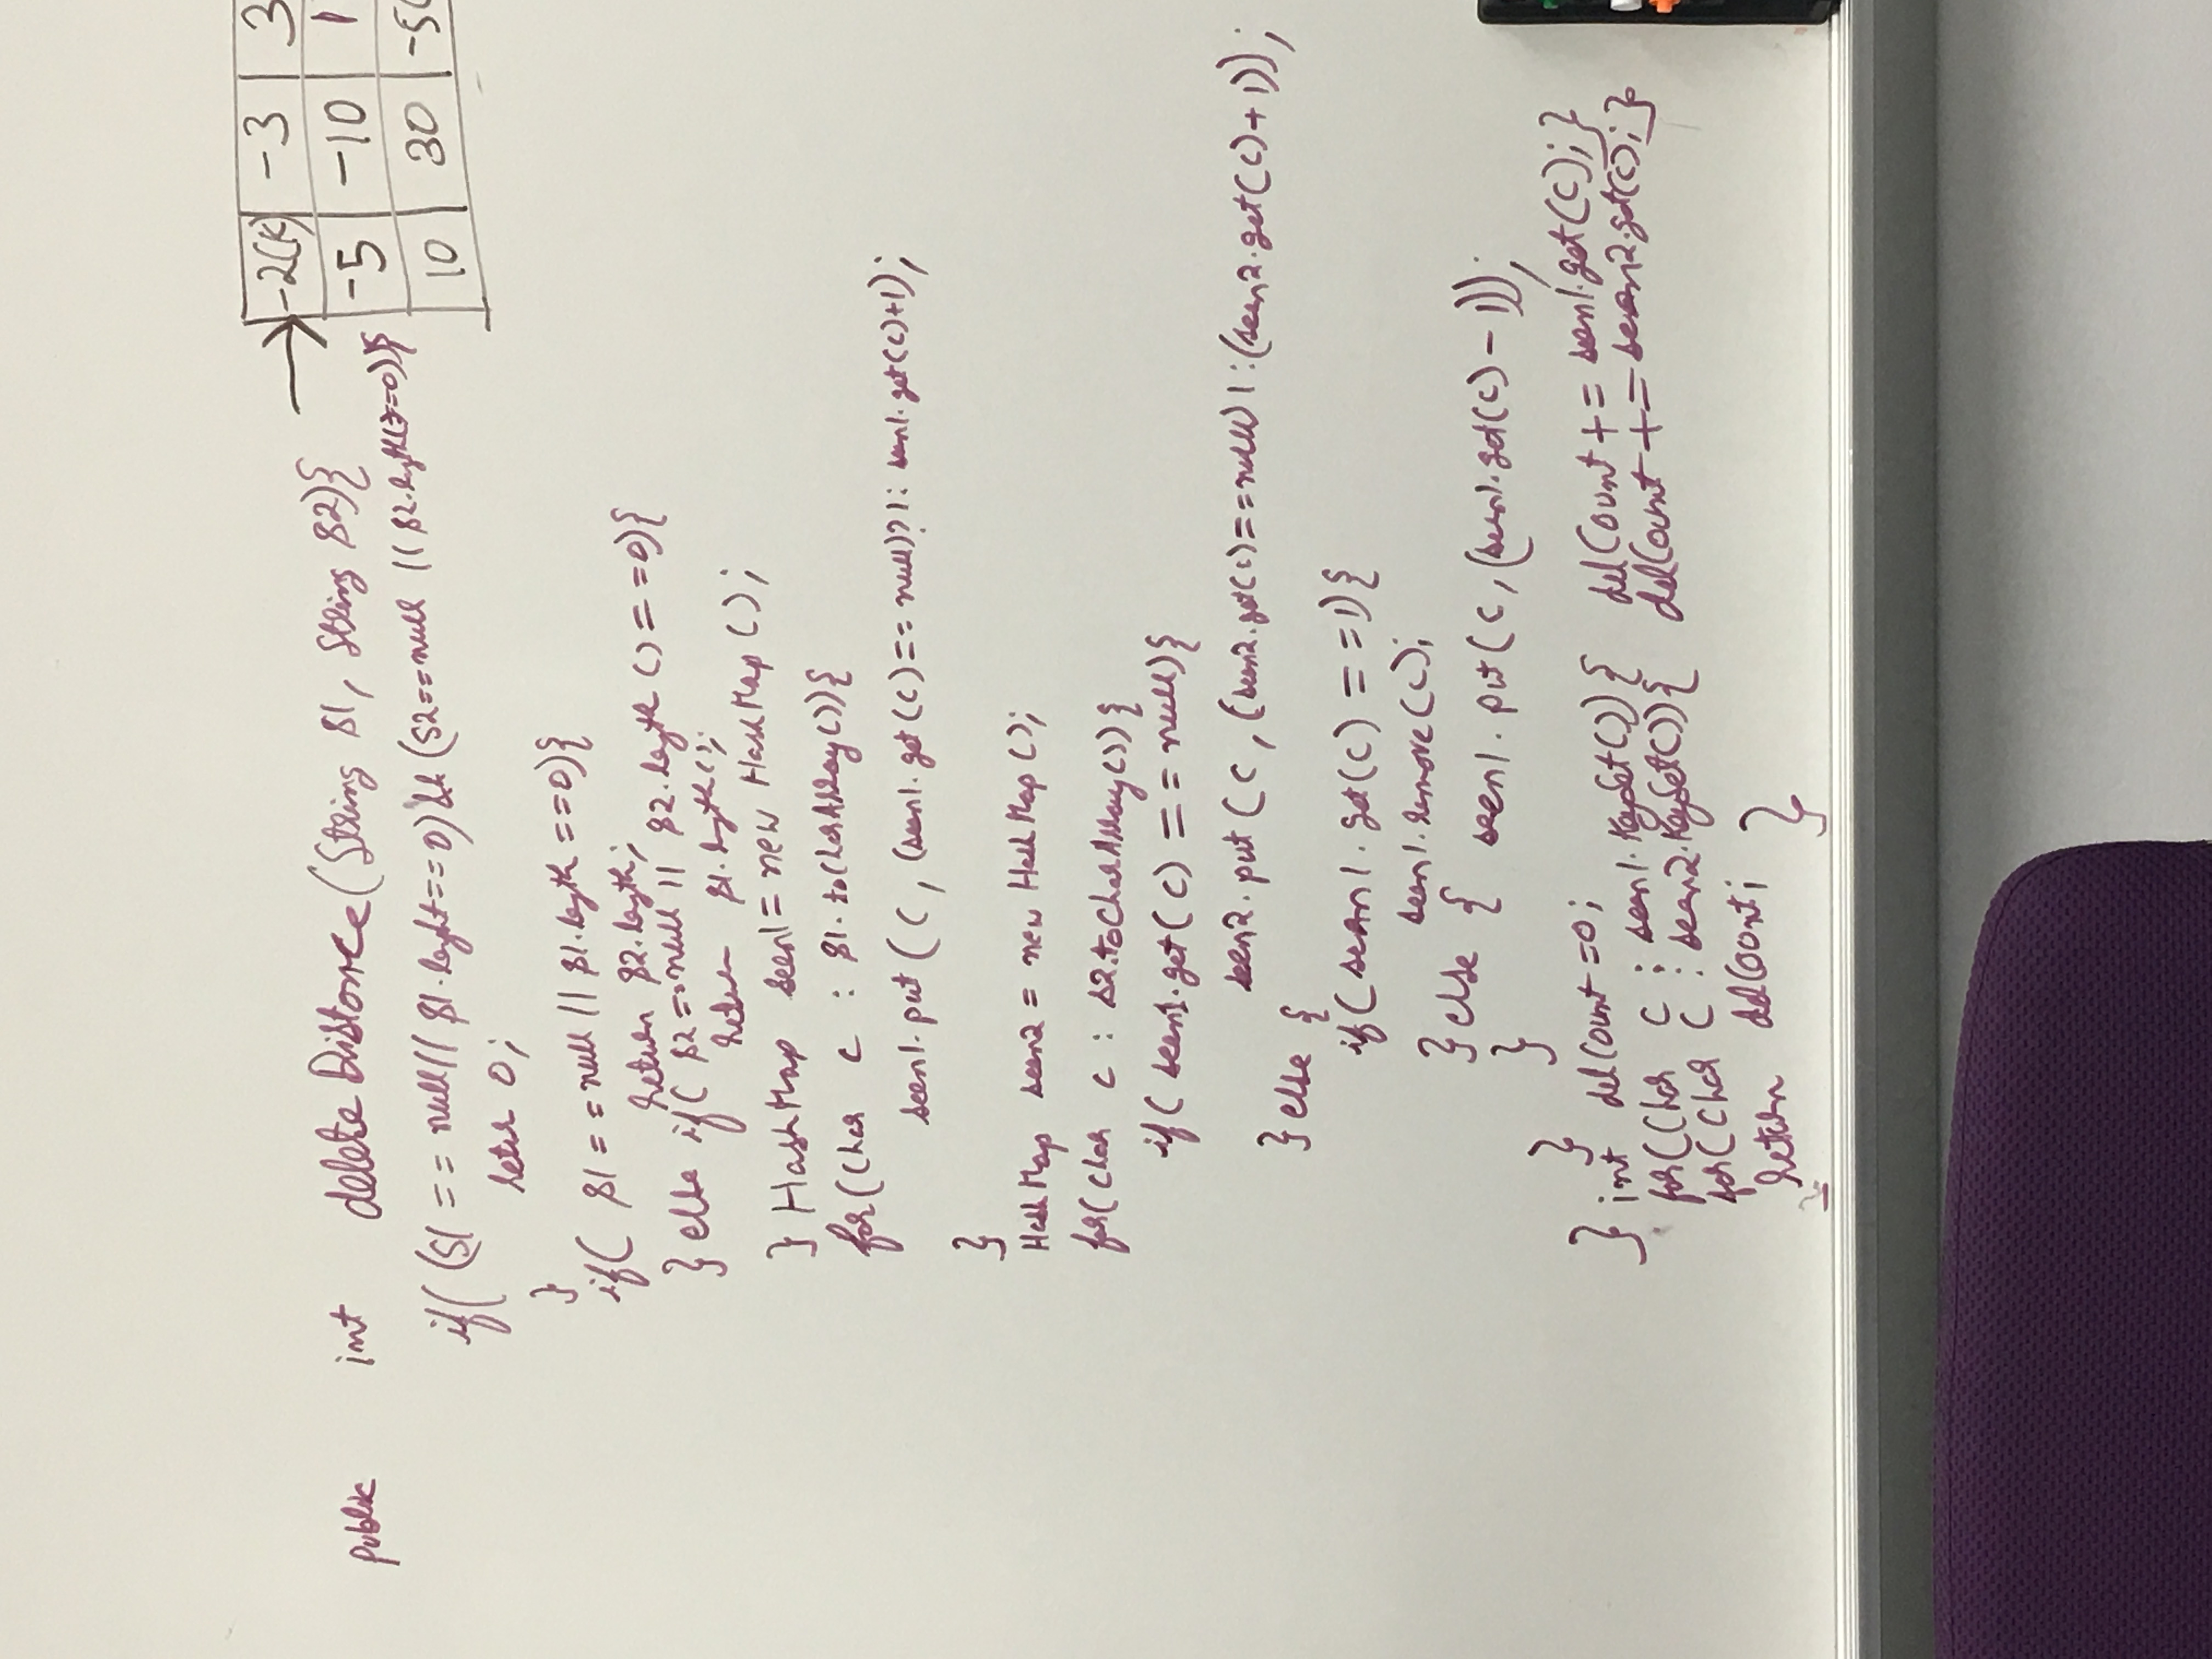 public int deleteDistance(String S1, String S2){
if( (S1 == null || S1.leght==0) && (S2==null || S2.legth()==0)){
retur 0;
}
if( S1 == null || S1.legth ==0){
return S2.legth;
} else if( S2 == null || S2.legth () ==0){
return S1.legth();
} HashMap seen1 = new HashMap ();
for(Char c : S1.toCharArray()){
seen1.put (c, (seen1.get(c)== null)?1: seen1.get(c)+1);
}
HashMap seen2 = new HashMap ();
for(Char c : s2.toCharArray()){
if( seen1.get(c) == null){
seen2.put (c, (seen2.get(c)==null) 1:(seen2.get(c)+1));
} else {
if( seen1.get(c) ==1){
seen1.remove(c);
} else { seen1.put(c, (seen1.get(c) - 1));
}
}
} int delCount =0;
for(Char c : seen1.KeySet()){ delCount += seen1.get(c);}
for(Char c : seen2.KeySet()){ delCount += seen2.get(c);}
return delCount; }
-2(K) -3 3
-5 -10 1
10 30